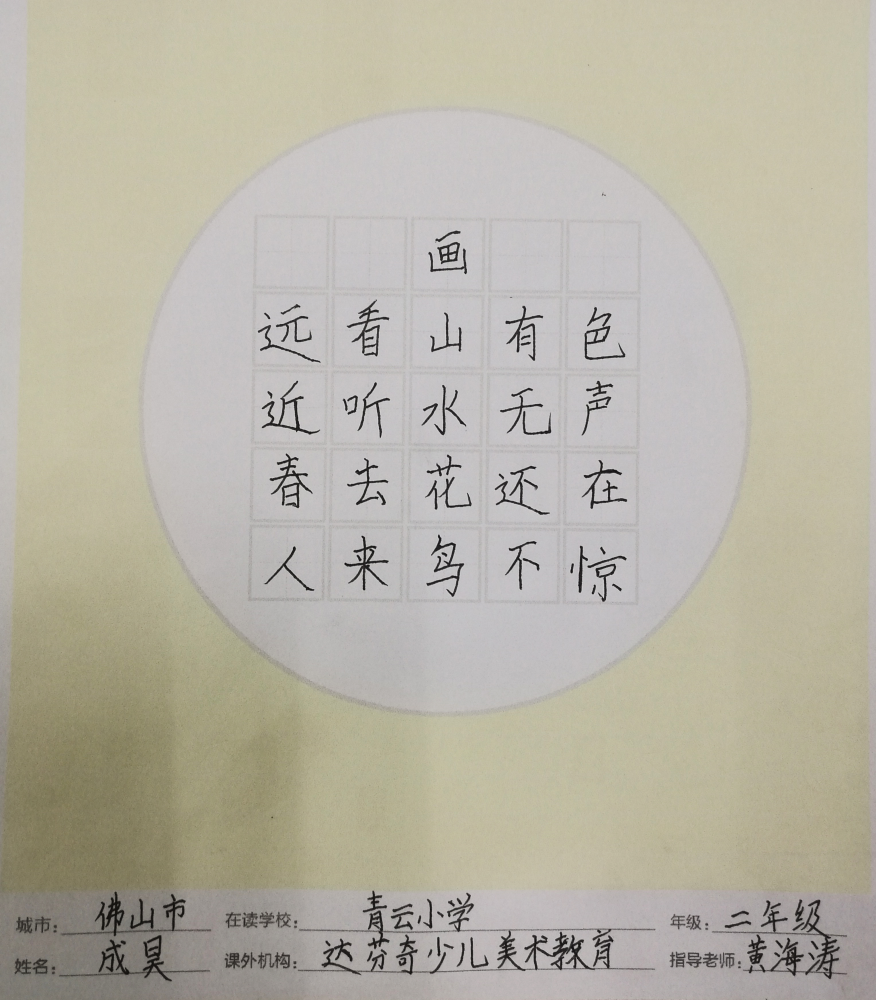 画
远看山有色
近听水无声
春去花还在
人来鸟不惊
城市: 佛山市 在读学校: 青云小学 年级: 二年级
姓名: 成昊 课外机构: 达芬奇少儿美术教育 指导老师: 黄海涛